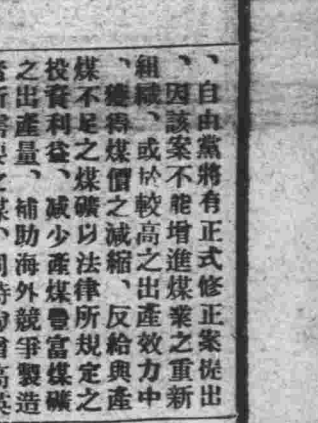 、自由黨將有正式修正案提出
、因該案不能增進煤業之重新
組織、或於較高之出產效力中
、獲得煤價之減縮、反給與產
煤不足之煤礦以法律所規定之
投資利益、减少產煤豐富煤礦
之出產量、補助海外競爭製造